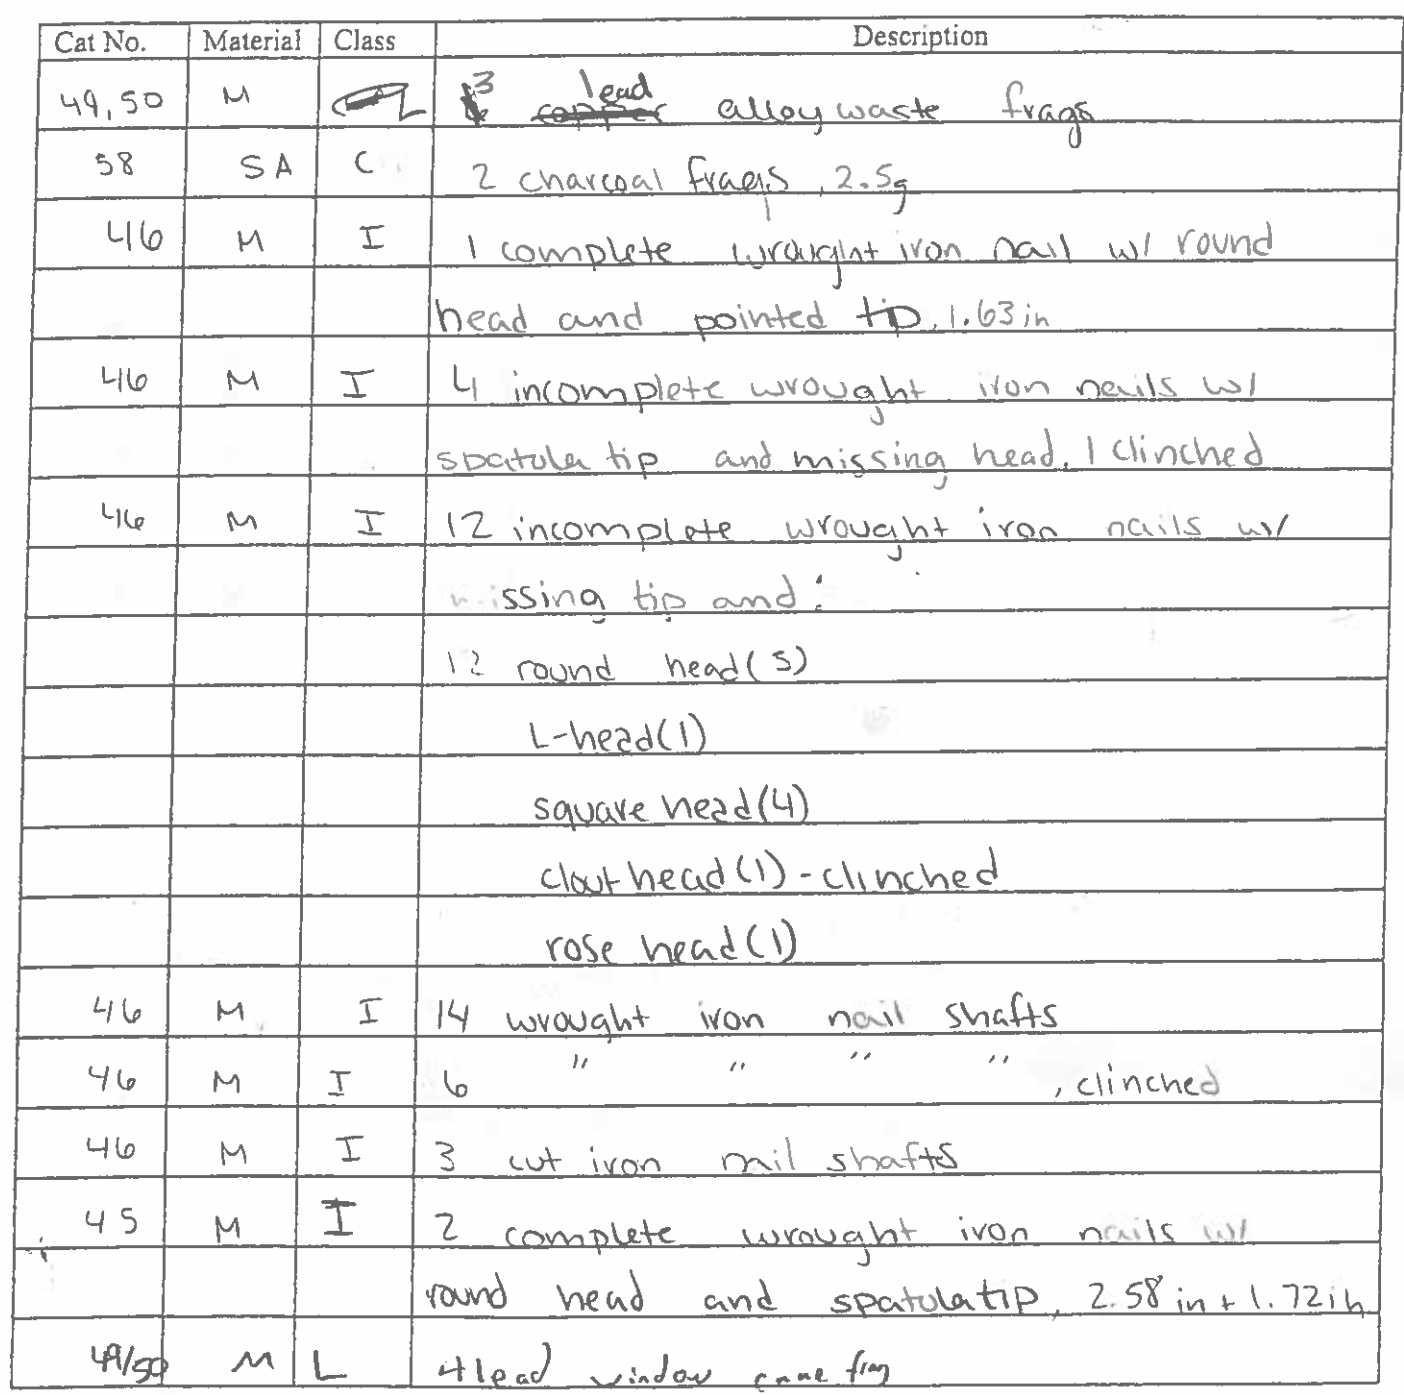 Cat No. Material Class Description
49,50 M L 3 lead alloy waste frags
58 SA C 2 charcoal frags, 2.5g
46 M I 1 complete wrought iron nail w/ round
head and pointed tip, 1.63 in
46 M I 4 incomplete wrought iron nails w/
spatula tip and missing head, 1 clinched
46 M I 12 incomplete wrought iron nails w/
missing tip and:
12 round head(5)
L-head(1)
square head(4)
clout head(1) - clinched
rose head(1)
46 M I 14 wrought iron nail shafts
46 M I 6 " " " " , clinched
46 M I 3 cut iron nail shafts
45 M I 2 complete wrought iron nails w/
round head and spatula tip, 2.58 in + 1.72 in
49/50 M L 4 lead window came frag